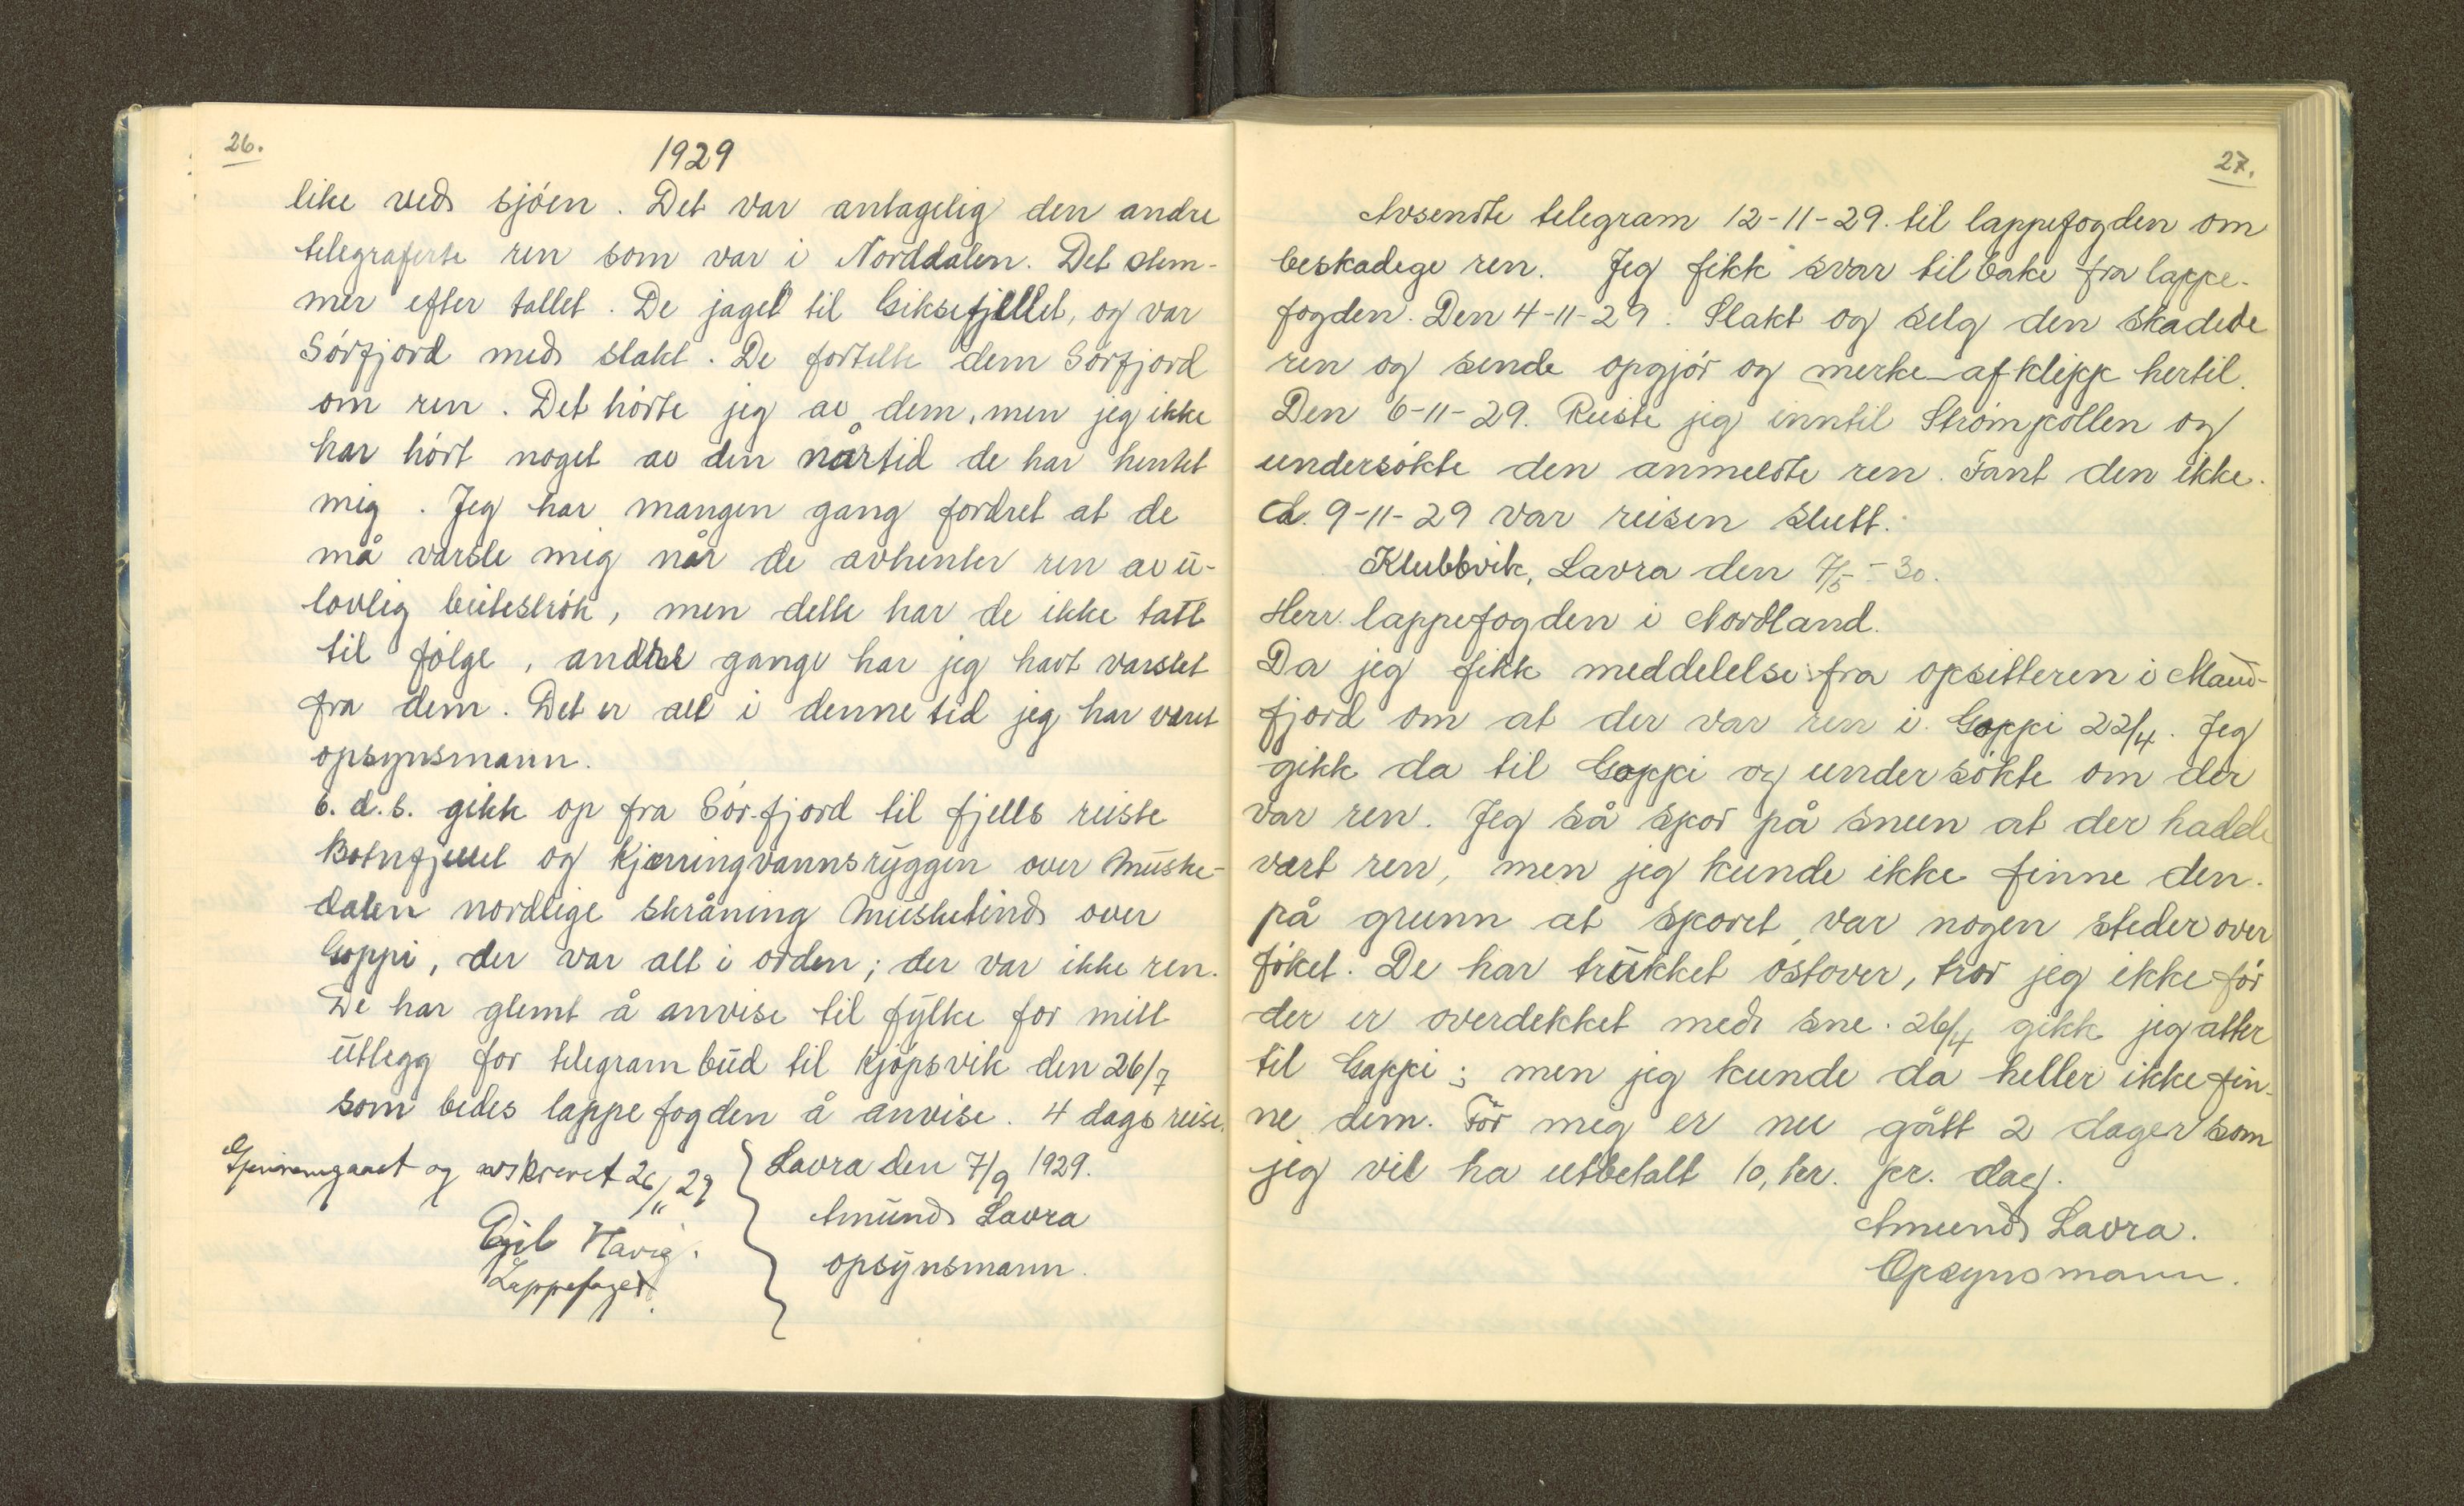 26.
1929
like ved sjóen. Det var antagelig den andre
telegraferte ren som var i Norddalen. Det stem-
mer efter tallet. De jaget til Giksefjellet, og var
Sórfjord med slakt. De fortelte dem Sórfjord
om ren. Det hórte jeg av dem, men jeg ikke
har hórt noget av den når tid de har hentet
mig. Jeg har mangen gang fordret at de
må varsle mig når de avhenter ren av u-
lovlig beitestrók, men dette har de ikke tatt
til fólge, andre gange har jeg havt varslet
fra dem. Det er alt i denne tid jeg har været
opsynsmann.
6. d. s. gikk op fra Sór-fjord til fjells reiste
Botnfjellet og Kjerringvannsryggen over Muske-
dalen nordlige skråning Musketind over
Goppi, der var alt i orden; der var ikke ren.
De har glemt å anvise til fylke for mitt
utlegg for telegram bud til Kjópsvik den 26/7
som bedes lappefogden å anvise. 4 dags reise.
Gjennemgaaet og avskrevet 26/11 29
Egil Havig.
Lappefoged.
Lavra den 7/9 1929.
Amund Lavra
opsynsmann.
27.
Avsendte telegram 12-11-29. til lappefogden om
beskadege ren. Jeg fikk svar tilbake fra lappe-
fogden. Den 4-11-29. Slakt og selg den skadede
ren og sende opgjór og merke-afklipp hertil.
Den 6-11-29. Reiste jeg inntil Strómpollen og
undersókte den anmeldte ren. Fant den ikke.
d. 9-11-29 var reisen slutt.
Klubbvik, Lavra den 7/5 - 30.
Herr. lappefogden i Nordland.
Da jeg fikk meddelelse fra opsitteren i Maud-
fjord om at der var ren i Goppi 22/4. Jeg
gikk da til Goppi og undersókte om der
var ren. Jeg så spor på sneen at der hadde
vært ren, men jeg kunde ikke finne den.
på grunn at sporet var nogen steder over
fóket. De har trukket óstover, tror jeg ikke fór
der er overdekket med sne. 26/4 gikk jeg atter
til Goppi; men jeg kunde da heller ikke fin-
ne dem. Fór mig er nu gått 2 dager som
jeg vil ha utbetalt 10, kr. pr. dag.
Amund Lavra.
Opsynsmann.